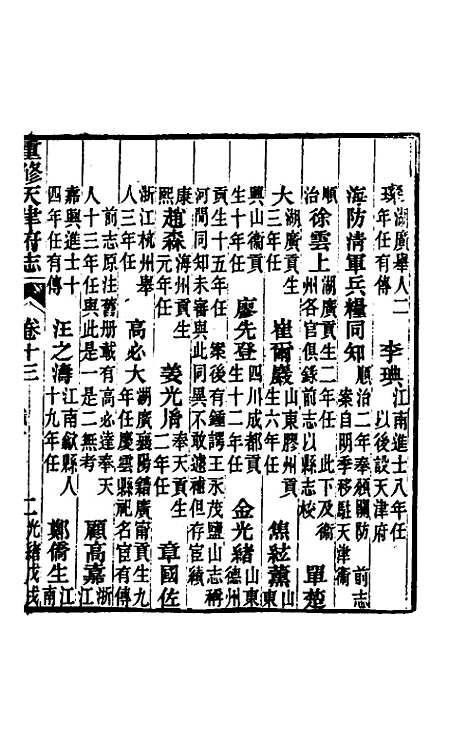 湖廣舉人二
年任有傳
李琠
江南進士八年任
以後設天津府
海防清軍兵糧同知
順治二年奉頒關防 前志
案自明季移駐天津衛
順治
徐雲上
湖廣貢生二年任 此下及衛
州各官俱錄前志以縣志校
單楚
大
湖廣貢生
三年任
崔爾巖
山東膠州貢
生六年任
焦紘薰
山東
興山衛貢
生十年任
廖先登
四川成都貢
生十二年任
金光緒
山東
德州
貢生十五年任 案後有鍾諤王永茂鹽山志稱
河間同知未審與此同異不敢遽補但存宦績
康熙
趙森
海州貢生
元年任
姜光
奉天貢生
二年任
章國佐
浙江杭州舉
人三年任
高必大
湖廣襄陽籍廣甯貢生九
年任慶雲縣祀名宦有傳
前志原注舊册載有高必達奉天
人十三年任與此是一是二無考
顧高嘉
浙江
嘉興進士十
四年任有傳
汪之濤
江南歙縣人
十九年任
鄭僑生
江南
重修天津府志
卷十三
二
光緒戊戌